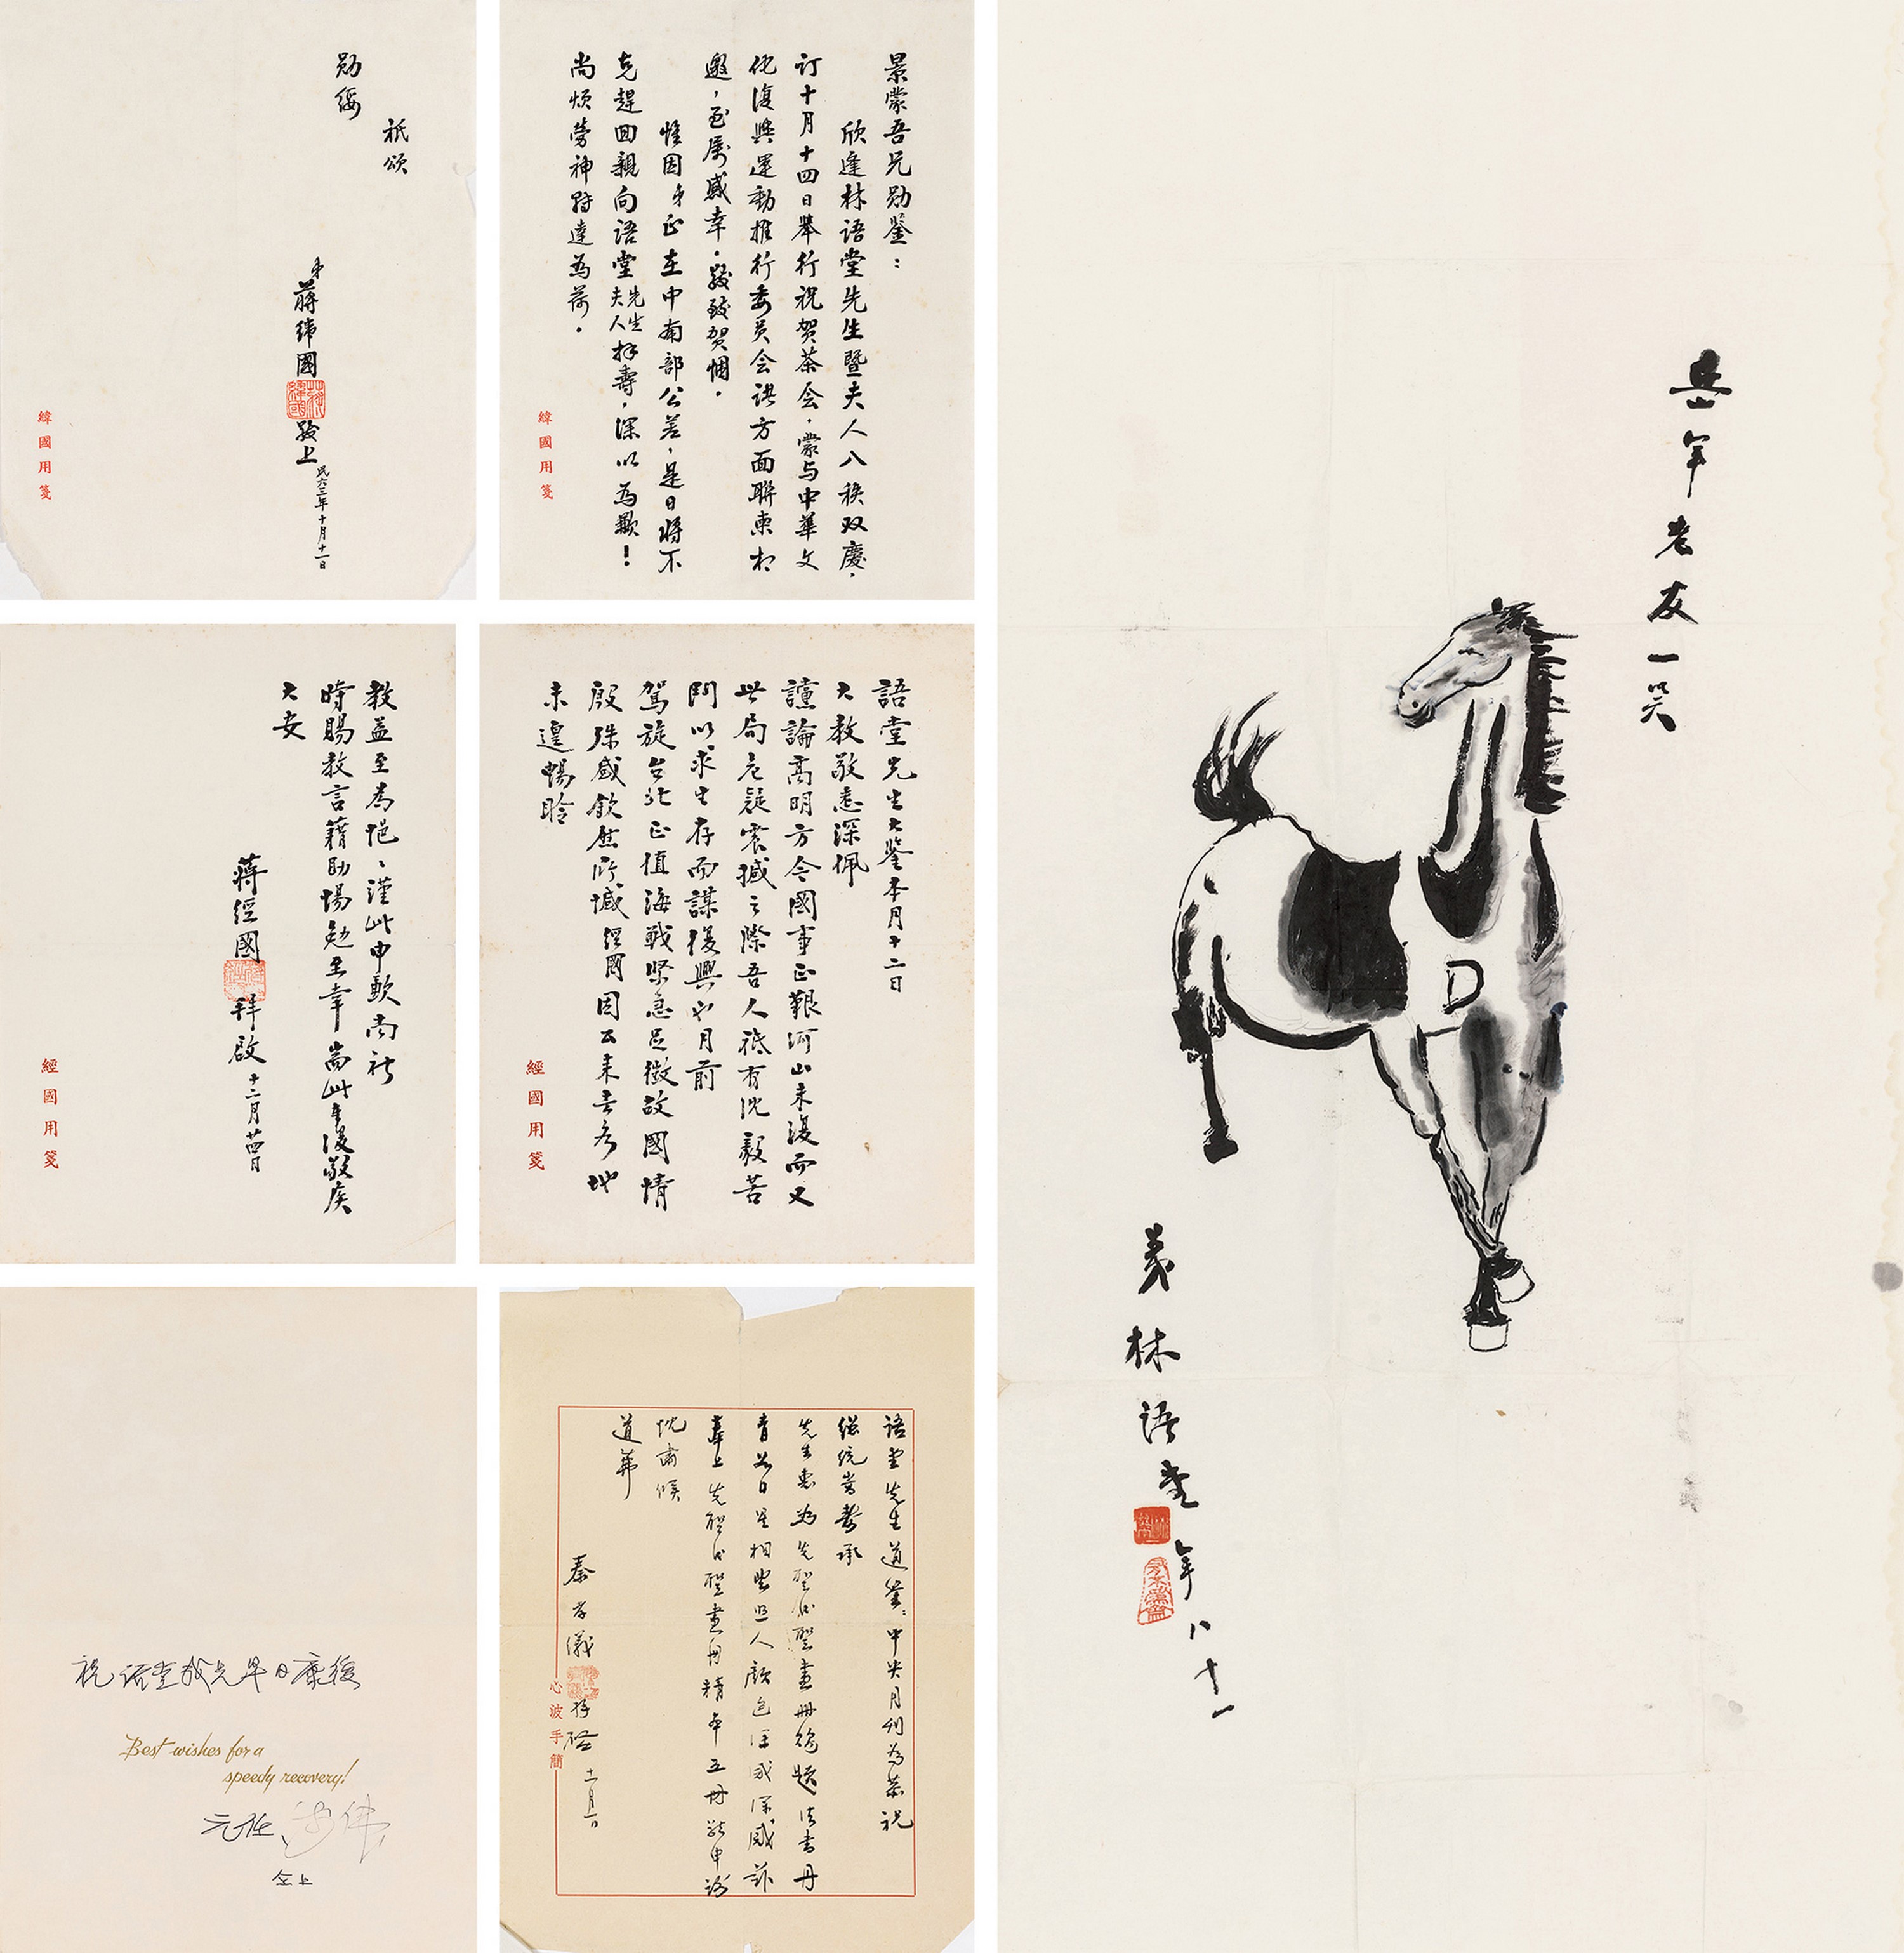 景蒙吾兄勛鑒：
欣逢林語堂先生暨夫人八秩双慶，
订十月十四日舉行祝贺茶会，蒙与中華文
化復興運動推行委员会諸方面聯柬相
邀，至属感幸。敬致贺悃。
惟因弟正在中南部公差，是日將不
克趕回親向語堂先生夫人拜壽，深以為歉！
尚烦勞神轉達為荷。
緯國用箋
祇頌
勛綏
弟蔣緯國敬上
民六三年十月十一日
緯國用箋
語堂先生大鑒本月十二日
大教敬悉深佩
讜論高明方今國事正艱河山未復而又
世局危疑震撼之際吾人祗有沈毅苦
鬥以求生存而謀復興也月前
駕旋台北正值海戰緊急足徵故國情
殷殊感欽企所憾經國因公未克多地
未遑暢聆
經國用箋
教益至為悒悒謹此申歉尚祈
時賜教言藉助惕勉至幸耑此奉復敬候
大安
蔣經國拜啟十二月廿四日
經國用箋
語堂先生道鑒：中央月刊為恭祝
總統嵩壽承
先生惠為先聖
畫冊
題法書丹
青
日星相照人顏色深感
奉上先聖
畫冊精本五冊
申謝
忱肅候
道華
秦孝儀拜啓十二月一日
心波手簡
祝语堂
兄早日康復
Best wishes for a
speedy recovery!
元任
仝上
岳年老友一笑
義林语堂年八十一